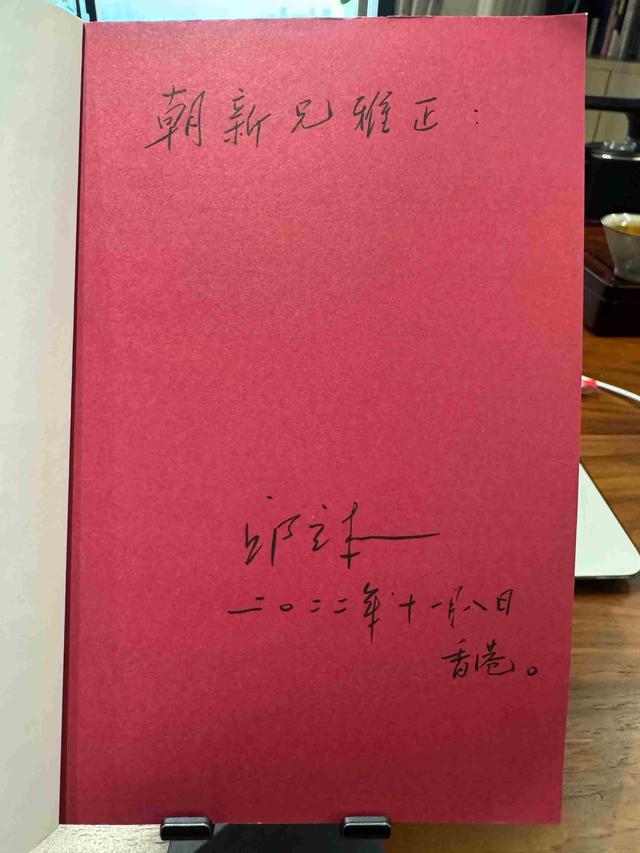 朝新兄雅正：
邱立本
二〇二二年十一月八日
香港。